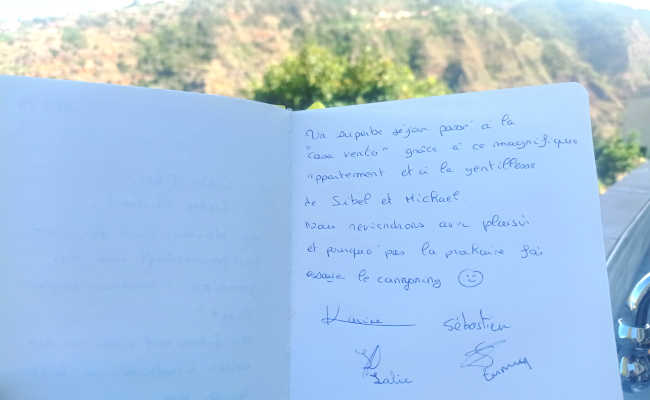 Un superbe séjour passé à la
"casa vento" grâce à ce magnifique
appartement et à la gentillesse
de Sibel et Michael
Nous reviendrons avec plaisir
et pourquoi pas la prochaine fois
essaye le canyoning
Karine
Sébastien